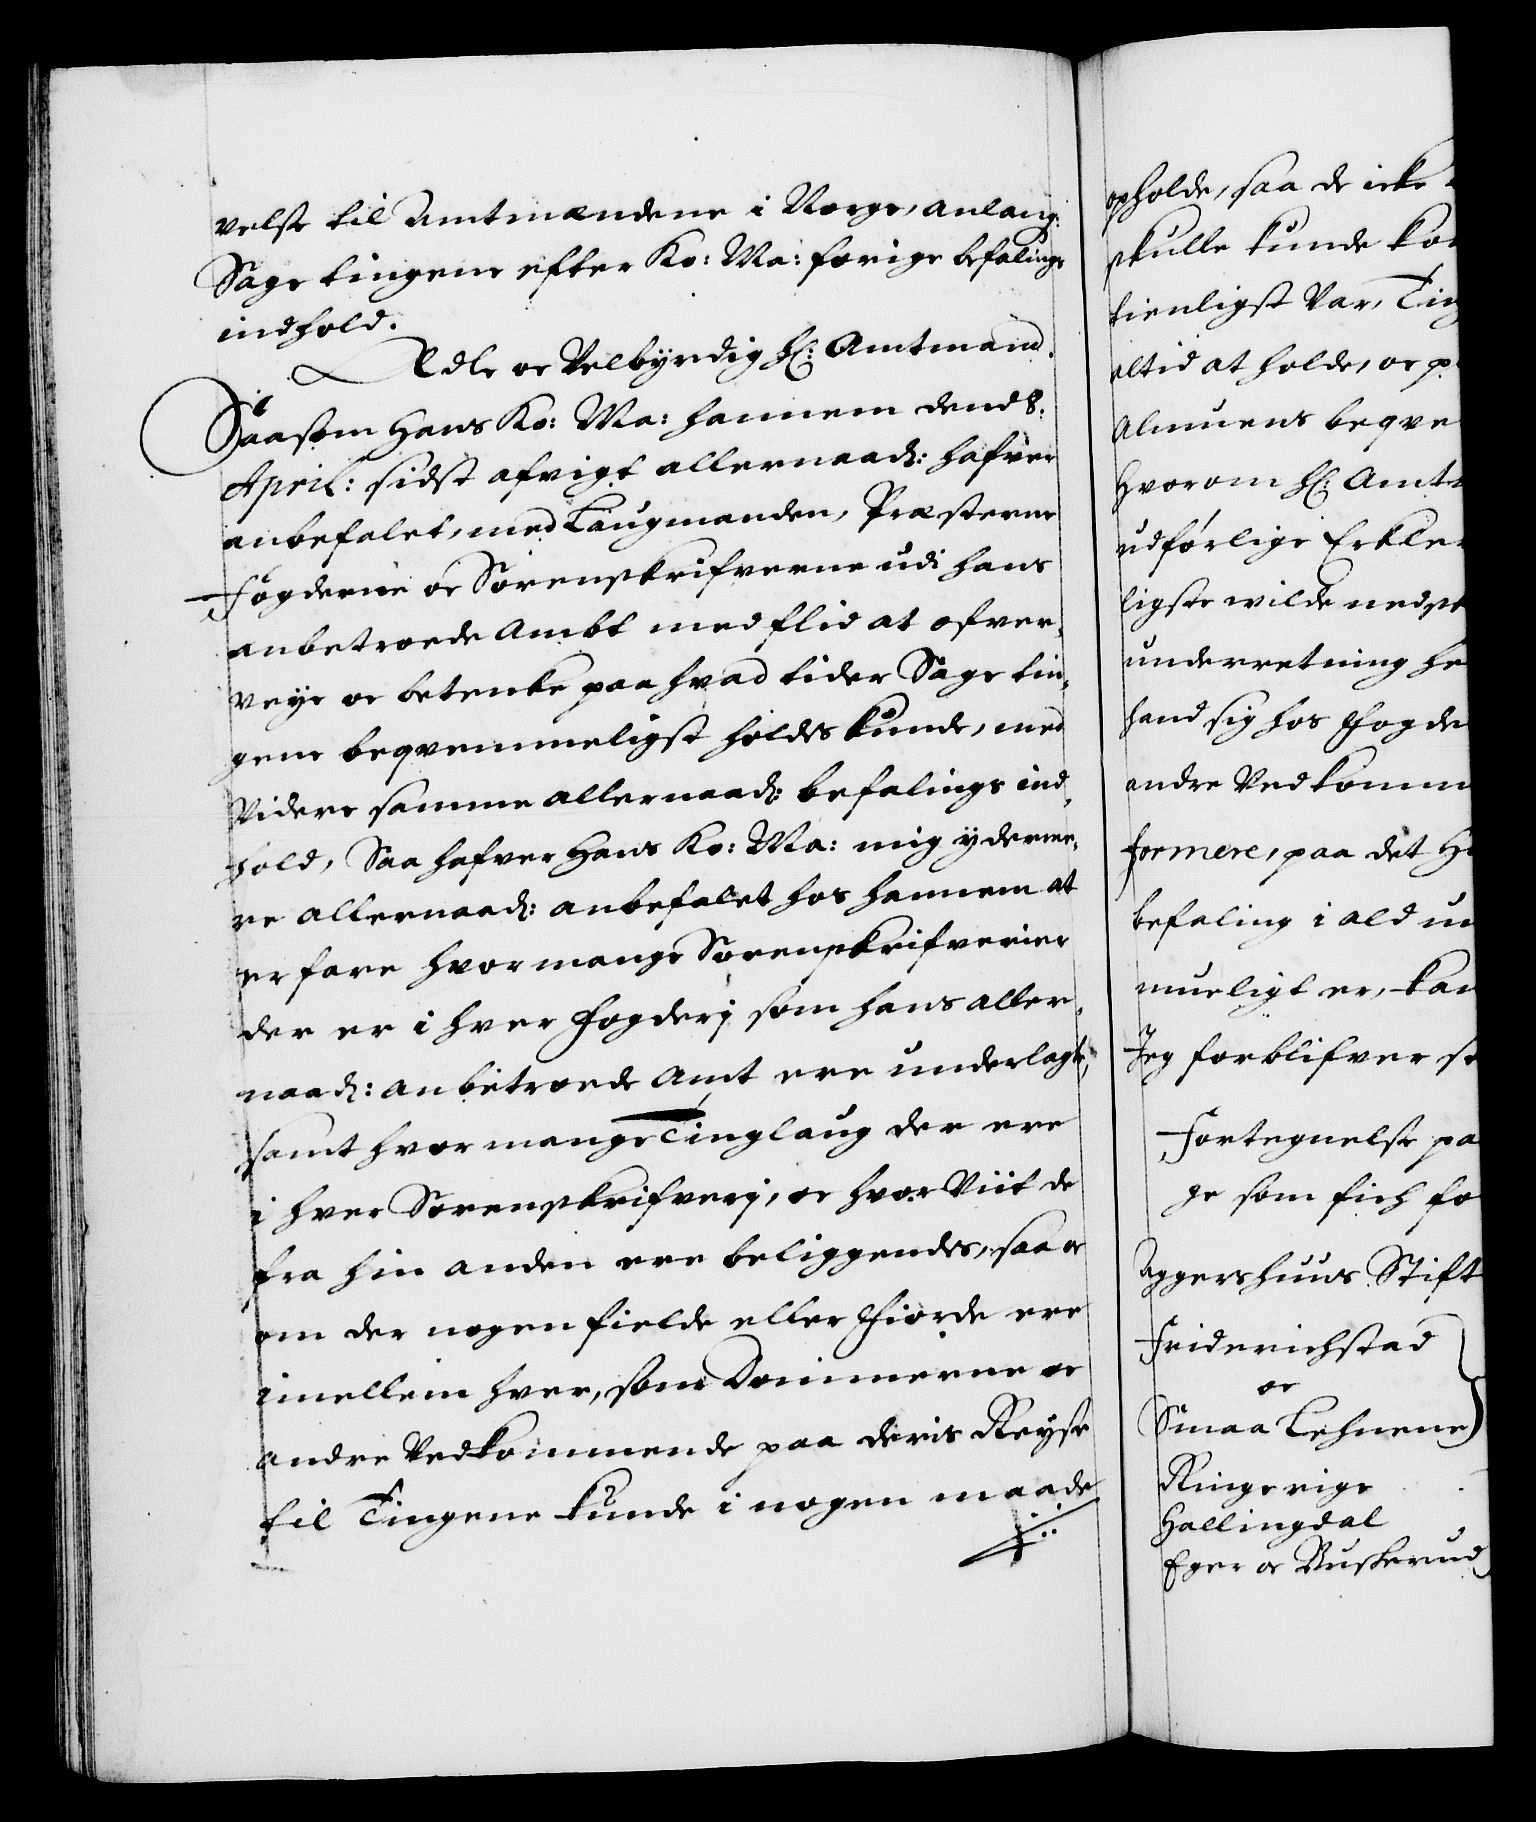 velse til Amtmændene i Norge, anlang:
Sage tingene efter Ko: Ma: forige befalings
indhold.
Ædle oc Velbyrdig H: Amtmand.
Saasom Hans Ko: Ma: hannem dend 8.
April: sidst afvigt allernaad: hafver
anbefalet, med Laugmanden, Præsterne
Fogderne oc Sorenskrifverne udi hans
anbetroede Ambt med flid at ofver,
veye oc betenke paa hvad tider Sage tin,
gene beqvemmeligst holdes kunde, med
Videre samme allernaad: befalings ind,
hold, Saa hafver Hans Ko: Ma: mig yderme,
re allernaad: anbefalet hos hannem at
erfare hvor mange Sorenskrifverier
der er i hver fogderj som hans aller,
naad: anbetroede Amt ere underlagt,
samt hvor mange Tinglaug der ere
i hver Sorenskrifverj, oc hvor Viit de
fra hin anden ere beliggendes, saa oc
om der nogen fielde eller fiorde ere
imellem hver, som Dommerne oc
andre Vedkommende paa deris Reyse
til Tingene kunde i nogen maade
opholde, saa de icke
skulle kunde
tienligst Var, Ting
altid at holde, oc
Almuens beqve
Hvorom H: Amt
udførlige Erkle
ligste wilde neds
underretning he
hand sig hos fogde
andre Vedkomm
formere, paa det
befaling i ald
mueligt er, kan
Jeg forblifver
Fortegnelse pa
ge som fich fo
Aggershuus Stift
Friderichstad
oc
Smaa Lehnene
Ringerige
Hallingdal
Eger oc Buskerud